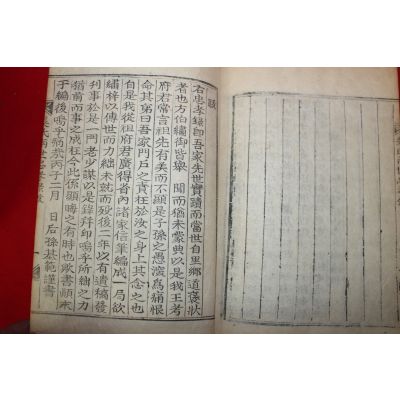 跋
右忠孝錄卽吾家先世實蹟而當世自里鄕道褒狀
者也方伯繡御皆舉 聞而猶未蒙典以是我王考
府君常言祖先有美而不顯是子孫之愚演爲痛恨
命其弟曰吾家門戶之責在於汝之身上其念之也
自是我從祖府君廣得省內諸家信筆編成一局欲
繡梓以傳世而力絀未就而歿後一年以有遺稿發
刊事於是一門老少謀以是錄幷印嗚乎所絀之力
猶前而事之成在今此係顯晦之有時也歟書顚末
于編後嗚乎痛矣丙子二月 日后孫基範謹書